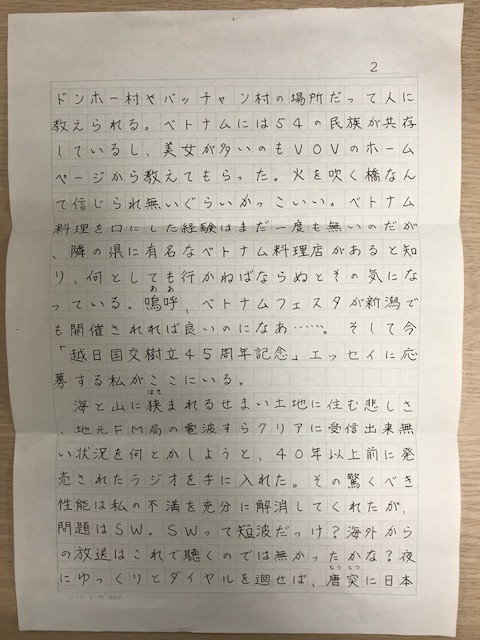 2
ドンホー村やバッチャン村の場所だって人に
教えられる。ベトナムには54の民族が共存
しているし、美女が多いのもVOVのホーム
ページから教えてもらった。火を吹く橋なん
て信じられ無いぐらいかっこいい。ベトナム
料理を口にした経験はまだ一度も無いのだが
、隣の県に有名なベトナム料理店があると知
り、何としても行かねばならぬとその気にな
っている。嗚呼、ベトナムフェスタが新潟で
も開催されれば良いのになあ……。そして今
「越日国交樹立45周年記念」エッセイに応
募する私がここにいる。
海と山に狭まれるせまい土地に住む悲しさ
、地元FM局の電波すらクリアに受信出来無
い状況を何とかしようと、40年以上前に発
売されたラジオを手に入れた。その驚くべき
性能は私の不満を充分に解消してくれたが、
問題はSW。SWって短波だっけ?海外から
の放送はこれで聴くのでは無かったかな?夜
にゆっくりとダイヤルを廻せば、唐突に日本